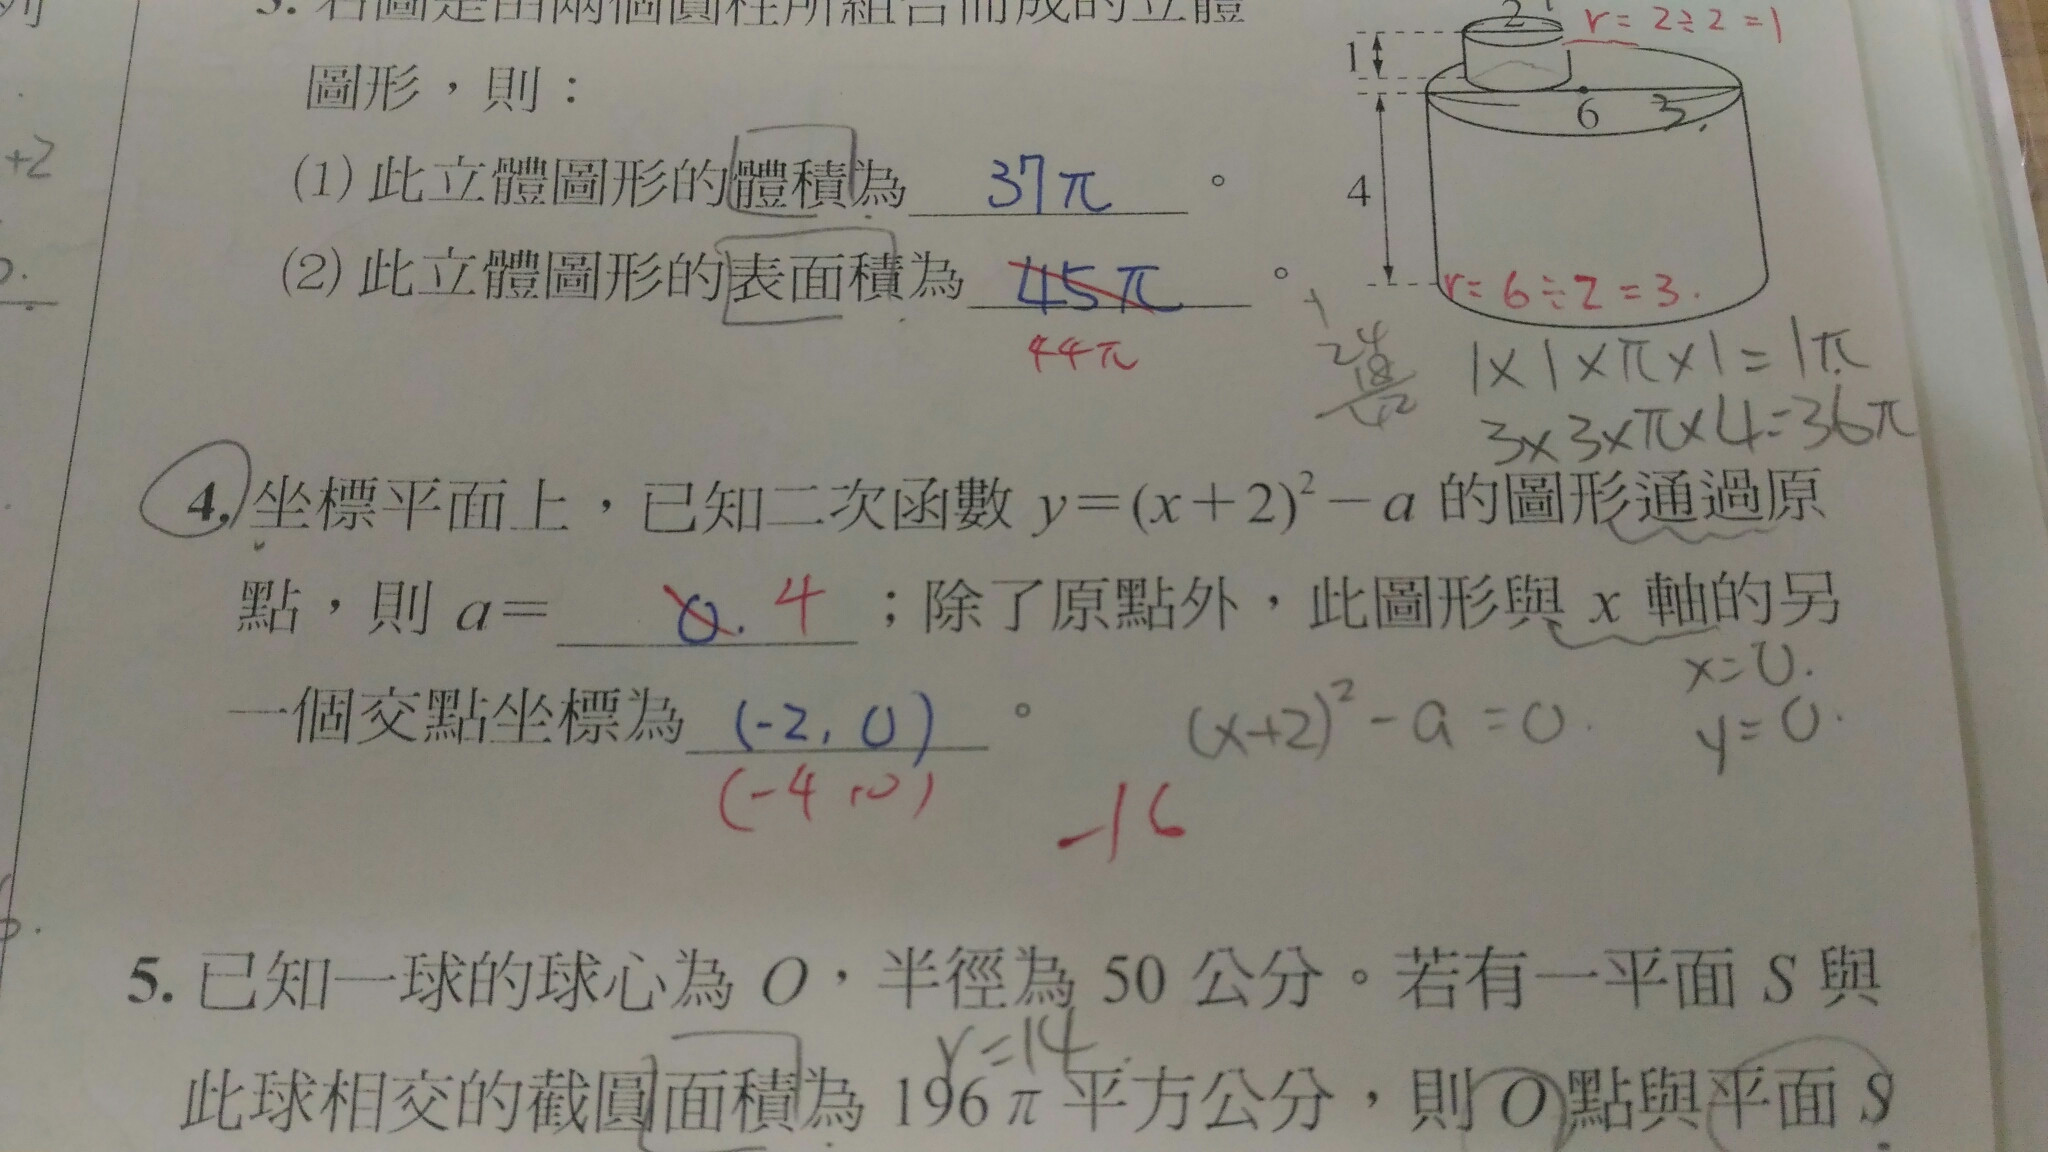 3. 右圖是由兩個圓柱所組合而成的立體
圖形，則：
(1) 此立體圖形的體積為 37π 。
(2) 此立體圖形的表面積為 45π 。
44π
2
r = 2÷2 = 1
1
6
3.
4
r = 6÷2 = 3.
1×1×π×1=1π
3×3×π×4=36π
4. 坐標平面上，已知二次函數 y＝(x＋2)²－a 的圖形通過原
點，則 a＝ 0. 4 ；除了原點外，此圖形與 x 軸的另
一個交點坐標為 (-2, 0) 。
(-4, 0)
(x+2)² - a = 0.
x=0.
y=0.
-16
5. 已知一球的球心為 O，半徑為 50 公分。若有一平面 S 與
r=14
此球相交的截圓面積為 196π 平方公分，則 O 點與平面 S
+2